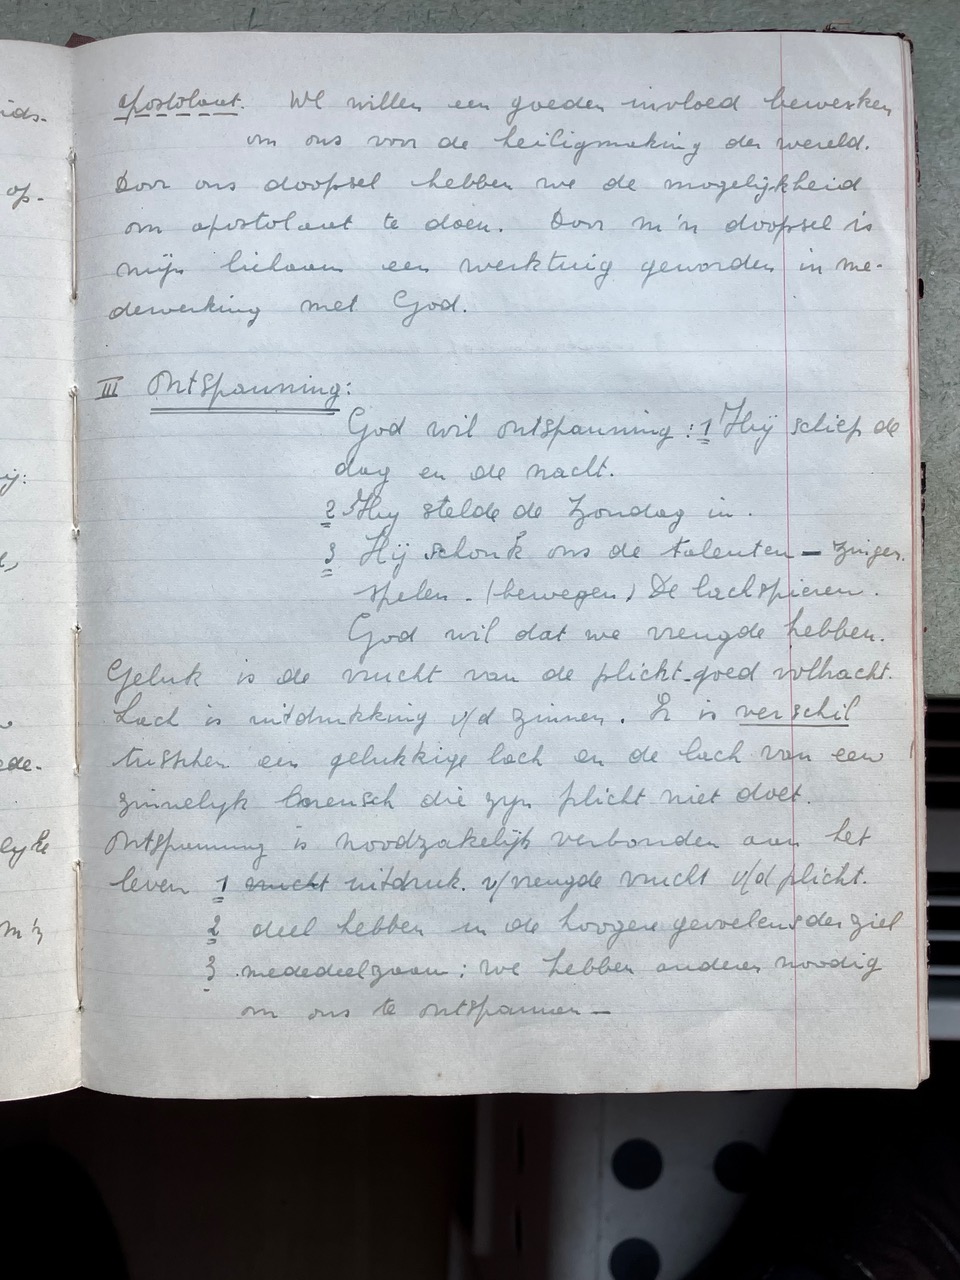 apostolaat. We willen een goeden invloed bewerken
om ons voor de heiligmaking der wereld.
Door ons doopsel hebben we de mogelijkheid
om apostolaat te doen. Door m'n doopsel is
mijn lichaam een werktuig geworden in me-
dewerking met God.
III Ontspanning:
God wil ontspanning : 1 Hij schiep de
dag en de nacht.
2 Hij stelde de Zondag in.
3 Hij schonk ons de talenten – zingen.
spelen - (bewegen) De lachspieren.
God wil dat we vreugde hebben.
Geluk is de vrucht van de plicht-goed volbracht.
Lach is uitdrukking v/d zinnen. Er is verschil
tusschen een gelukkige lach en de lach van een
zinnelijk mensch die zijn plicht niet doet.
Ontspanning is noodzakelijk verbonden aan het
leven 1 vrucht uitdruk. v/vreugde vrucht v/d plicht.
2 deel hebben in de hoogere gevoelens der ziel
3 mededeelzaam : we hebben anderen noodig
om ons te ontspannen –
ids.
op-
ij:
ede-
lijke
m'n